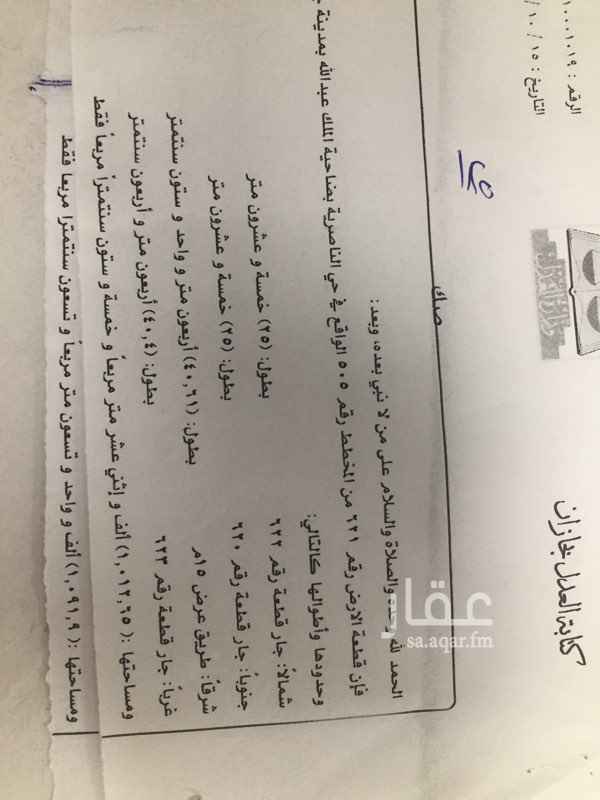 الرقم :
التاريخ : ١٥ / ١٠ /
كتابة العدل بجازان
صك
الحمد لله وحده والصلاة والسلام على من لا نبي بعده، وبعد:
فإن قطعة الارض رقم ٦٢١ من المخطط رقم ٥٠٥ الواقع في حي الناصرية بضاحية الملك عبدالله بمدينة
وحدودها وأطوالها كالتالي:
شمالاً: جار قطعة رقم ٦٢٢ بطول: (٢٥) خمسة و عشرون متر
جنوباً: جار قطعة رقم ٦٢٠ بطول: (٢٥) خمسة و عشرون متر
شرقاً: طريق عرض ١٥م بطول: (٤٠,٦١) أربعون متر و واحد و ستون سنتمتر
غرباً: جار قطعة رقم ٦٢٣ بطول: (٤٠,٤) أربعون متر و أربعون سنتمتر
ومساحتها : (١,٠١٢,٦٥) ألف و إثني عشر متر مربعاً و خمسة و ستون سنتمتراً مربعاً فقط
ومساحتها : (١,٠٩١,٩) ألف و واحد و تسعون متر مربعاً و تسعون سنتمترا مربعا فقط
عقار
sa.aqar.fm